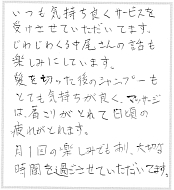 いつも気持ち良くサービスを
受けさせていただいてます。
じわじわくる寸尾さんの話も
楽しみにしています。
髪を切った後のシャンプーも
とても気持ちが良く、マッサージ
は、肩こりがとれて日頃の
疲れがとれます。
月1回の楽しみでもあり、大切な
時間を過ごさせていただいてます。